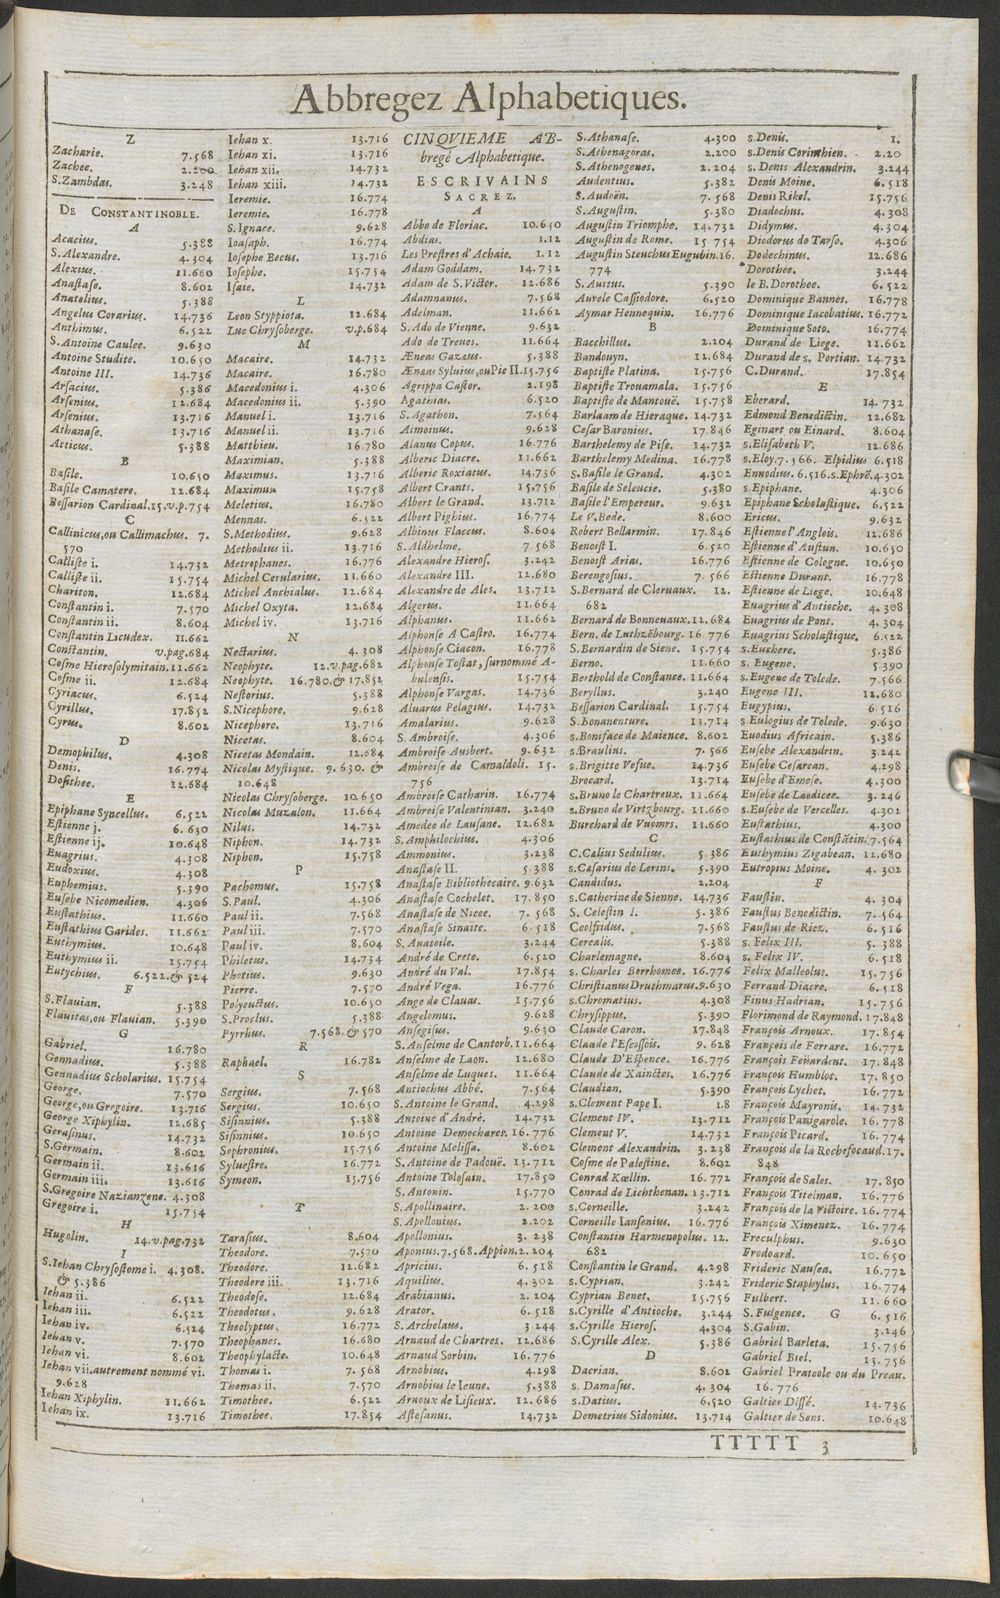 Abbregez Alphabetiques.
Z
Zacharie. 7.568
Zachee. 2.200
S.Zambdas. 3.248
DE CONSTANTINOBLE.
A
Acacius. 5.388
S.Alexandre. 4.304
Alexius. 11.660
Anastase. 8.602
Anatolius. 5.388
Angelus Corarius. 14.736
Anthimus. 6.522
S.Antoine Caulee. 9.630
Antoine Studite. 10.650
Antoine III. 14.736
Arsacius. 5.386
Arsenius. 12.684
Arsenius. 13.716
Athanase. 13.716
Atticus. 5.388
B
Basile. 10.650
Basile Camatere. 12.684
Bessarion Cardinal.15.v.p.754
C
Callinicus,ou Callimachus. 7.
570
Calliste i. 14.732
Calliste ii. 15.754
Chariton. 12.684
Constantin i. 7.570
Constantin ii. 8.604
Constantin Licudex. 11.662
Constantin. v.pag.684
Cosme Hierosolymitain.11.662
Cosme ii. 12.684
Cyriacus. 6.524
Cyrillus. 17.852
Cyrus. 8.602
D
Demophilus. 4.308
Denis. 16.774
Dosithee. 12.684
E
Epiphane Syncellus. 6.522
Estienne j. 6.650
Estienne ij. 10.648
Euagrius. 4.308
Eudoxius. 4.308
Euphemius. 5.390
Eusebe Nicomedien. 4.306
Eustathius. 11.660
Eustathius Garides. 11.662
Euthymius. 10.648
Euthymius ii. 15.754
Eutychius. 6.522.& 524
F
S.Flauian. 5.388
Flauitas,ou Flauian. 5.390
G
Gabriel. 16.780
Gennadius. 5.388
Gennadius Scholarius. 15.754
George. 7.570
George,ou Gregoire. 13.716
George Xiphylin. 12.685
Gerasinus. 14.732
S.Germain. 8.602
Germain ii. 13.616
Germain iii. 13.616
S.Gregoire Nazianzene. 4.308
Gregoire i. 15.754
H
Hugolin. 14.v.pag.732
I
S.Iehan Chrysostome i. 4.308.
& 5.386
Iehan ii. 6.522
Iehan iii. 6.522
Iehan iv. 6.524
Iehan v. 7.570
Iehan vi. 8.602
Iehan vii.autrement nommé vi.
9.628
Iehan Xiphylin. 11.662
Iehan ix. 13.716
Iehan x. 13.716
Iehan xi. 13.716
Iehan xii. 14.732
Iehan xiii. 14.732
Ieremie. 16.774
Ieremie. 16.778
S.Ignace. 9.628
Ioasaph. 16.774
Iosephe Becus. 13.716
Iosephe. 15.754
Isaie. 14.732
L
Leon Styppiota. 12.684
Luc Chrysoberge. v.p.684
M
Macaire. 14.732
Macaire. 16.780
Macedonius i. 4.306
Macedonius ii. 5.390
Manuel i. 13.716
Manuel ii. 13.716
Matthieu. 16.780
Maximian. 5.388
Maximus. 13.716
Maximus. 15.758
Meletius. 16.780
Mennas. 6.522
S.Methodius. 9.628
Methodius ii. 13.716
Metrophanes. 16.776
Michel Cerularius. 11.660
Michel Anchialus. 12.684
Michel Oxyta. 12.684
Michel iv. 13.716
N
Nectarius. 4.308
Neophyte. 12.v.pag.682
Neophyte. 16.780.& 17.852
Nestorius. 5.388
S.Nicephore. 9.628
Nicephore. 13.716
Nicetas. 8.604
Nicetas Mondain. 12.684
Nicolas Mystique. 9.630. &
10.648
Nicolas Chrysoberge. 10.650
Nicolas Muzalon. 11.664
Nilus. 14.732
Niphon. 14.732
Niphon. 15.758
P
Pachomus. 15.758
S.Paul. 4.306
Paul ii. 7.568
Paul iii. 7.570
Paul iv. 8.604
Philetus. 14.734
Photius. 9.630
Pierre. 7.570
Polyeuctus. 10.650
S.Proclus. 5.388
Pyrrhus. 7.568.& 570
R
Raphael. 16.782
S
Sergius. 7.568
Sergius. 10.650
Sisinnius. 5.388
Sisinnius. 10.650
Sophronius. 15.756
Syluestre. 16.772
Symeon. 15.756
T
Tarasius. 8.604
Theodore. 7.570
Theodore. 12.682
Theodore iii. 13.716
Theodose. 12.684
Theodotus. 9.628
Theolyptus. 16.772
Theophanes. 16.680
Theophylacte. 10.648
Thomas i. 7.568
Thomas ii. 7.570
Timothee. 6.522
Timothee. 17.854
CINQVIEME AB-
bregé Alphabetique.
ESCRIVAINS
SACREZ.
A
Abbo de Floriac. 10.650
Abdias. 1.12
Les Prestres d'Achaie. 1.12
Adam Goddam. 14.732
Adam de S.Victor. 12.686
Adamnanus. 7.568
Adelman. 11.662
S.Ado de Vienne. 9.632
Ado de Treues. 11.664
Æneas Gazæus. 5.388
Æneas Syluius,ou Pie II.15.756
Agrippa Castor. 2.198
Agathias. 6.520
S.Agathon. 7.564
Aimoinus. 9.628
Alanus Copus. 16.776
Alberic Diacre. 11.662
Alberic Roxiatus. 14.736
Albert Crants. 15.756
Albert le Grand. 13.712
Albert Pighius. 16.774
Albinus Flaccus. 8.604
S. Aldhelme. 7 568
Alexandre Hieros. 3.242
Alexandre III. 12.680
Alexandre de Ales. 13.712
Algerus. 11.664
Alphanus. 11.662
Alphonse A Castro. 16.774
Alphonse Ciacon. 16.778
Alphonse Tostat, surnommé A-
bulensis. 15.754
Alphonse Vargas. 14.736
Aluarus Pelagius. 14.732
Amalarius. 9.628
S. Ambroise. 4.306
Ambroise Ausbert. 9.632
Ambroise de Camaldoli. 15.
756
Ambroise Catharin. 16.774
Ambroise Valentinian. 3.240
Amedee de Lausane. 12.682
S.Amphilochius. 4.306
Ammonius. 3.238
Anastase II. 5.388
Anastase Bibliothecaire. 9.632
Anastase Cochelet. 17.850
Anastase de Nicee. 7. 568
Anastase Sinaite. 6.518
S. Anatoile. 3.244
André de Crete. 6.520
André du Val. 17.854
André Vega. 16.776
Ange de Clauas. 15.756
Angelomus. 9.628
Ansegisus. 9.630
S.Anselme de Cantorb.11.664
Anselme de Laon. 12.680
Anselme de Luques. 11.664
Antiochus Abbé. 7.564
S.Antoine le Grand. 4.298
Antoine d'André. 14.732
Antoine Demochares. 16.776
Antoine Melissa. 8.602
S.Antoine de Padouë. 13.712
Antoine Tolosain. 17.850
S.Antonin. 15.770
S.Apollinaire. 2.200
S.Apollonius. 2.202
Apollonius. 3.238
Aponius.7.568.Appion.2.204
Apricius. 6.518
Aquilius. 4.302
Arabianus. 2.204
Arator. 6.518
S.Archelaus. 3 244
Arnaud de Chartres. 12.686
Arnaud Sorbin. 16.776
Arnobius. 4.298
Arnobius le Ieune. 5.388
Arnoux de Lisieux. 12.686
Astesanus. 14.732
S.Athanase. 4.300
S.Athenagoras. 2.200
S.Athenogenes. 2.204
Audentius. 5.382
S.Audoën. 7.568
S.Augustin. 5.380
Augustin Triomphe. 14.732
Augustin de Rome. 15 754
Augustin Steuchus Eugubin.16.
774
S.Auitus. 5.390
Aurele Cassiodore. 6.520
Aymar Hennequin. 16.776
B
Bacchillus. 2.204
Bandouyn. 12.684
Baptiste Platina. 15.756
Baptiste Trouamala. 15.756
Baptiste de Mantouë. 15.758
Barlaam de Hieraque. 14.732
Cesar Baronius. 17.846
Barthelemy de Pise. 14.732
Barthelemy Medina. 16.778
s.Basile le Grand. 4.302
Basile de Seleucie. 5.380
Basile l'Empereur. 9.632
Le V.Bede. 8.600
Robert Bellarmin. 17.846
Benoist I. 6.520
Benoist Arias. 16.776
Berengosius. 7. 566
S.Bernard de Cleruaux. 12.
682
Bernard de Bonneuaux.12.684
Bern. de Lutzẽbourg. 16 776
S.Bernardin de Siene. 15.754
Berno. 11.660
Berthold de Constance. 11.664
Beryllus. 3.240
Bessarion Cardinal. 15.754
S.Bonauenture. 13.714
s.Boniface de Maience. 8.602
s.Braulius. 7. 566
s.Brigitte Vefue. 14.736
Brocard. 13.714
s.Bruno le Chartreux. 11.664
s.Bruno de Virtzbourg. 11.660
Burchard de Vuomrs. 11.660
C
C.Cælius Sedulius. 5.386
s.Cæsarius de Lerins. 5.390
Candidus. 2.204
s.Catherine de Sienne. 14.736
S. Celestin I. 5.386
Ceolfridus. 7.568
Cerealis. 5.388
Charlemagne. 8.604
s. Charles Borrhomee. 16.776
Christianus Druthmarus.9.630
s.Chromatius. 4.308
Chrysippus. 5.390
Claude Caron. 17.848
Claude l'Escossois. 9.628
Claude D'Espence. 16.776
Claude de Xainctes. 16.776
Claudian. 5.390
s.Clement Pape I. 1.8
Clement IV. 13.712
Clement V. 14.732
Clement Alexandrin. 3.238
Cosme de Palestine. 8.602
Conrad Kœllin. 16.772
Conrad de Lichthenan. 13.712
s.Corneille. 3.242
Corneille Iansenius. 16.776
Constantin Harmenopolus. 12.
682
Constantin le Grand. 4.298
s.Cyprian. 3.242
Cyprian Benet. 15.756
s.Cyrille d'Antioche. 3.244
s.Cyrille Hieros. 4.304
S.Cyrille Alex. 5.386
D
Dacrian. 8.602
s. Damasus. 4.304
s.Datius. 6.520
Demetrius Sidonius. 13.714
s.Denis. 1.
s.Denis Corinthien. 2.20
s.Denis Alexandrin. 3.244
Denis Moine. 6.518
Denis Rikel. 15.756
Diadochus. 4.308
Didymus. 4.304
Diodorus de Tarse. 4.306
Dodechinus. 12.686
Dorothee. 3.244
le B.Dorothee. 6.522
Dominique Bannes. 16.778
Dominique Iacobatius. 16.772
Dominique Soto. 16.774
Durand de Liege. 11.662
Durand de s. Portian. 14.732
C.Durand. 17.854
E
Eberard. 14.732
Edmond Benedictin. 12.682
Eginart ou Einard. 8.604
s.Elisabeth V. 12.686
s.Eloy.7.566. Elpidius 6.518
Ennodius. 6.516.s.Ephrẽ.4.302
s.Epiphane. 4.306
Epiphane Scholastique. 6.522
Ericus. 9.632
Estienne l'Anglois. 12.686
Estienne d'Austun. 10.650
Estienne de Cologne. 10.650
Estienne Durant. 16.778
Estienne de Liege. 10.648
Euagrius d'Antioche. 4.308
Euagrius de Pont. 4.304
Euagrius Scholastique. 6.522
s.Euchere. 5.386
s. Eugene. 5 390
s.Eugene de Tolede. 7.566
Eugene III. 12.680
Eugypius. 6 516
s.Eulogius de Tolede. 9.630
Euodius Africain. 5.386
Eusebe Alexandrin. 3.242
Eusebe Cesarean. 4.298
Eusebe d'Emese. 4.300
Eusebe de Laodicee. 3.246
s.Eusebe de Vercelles. 4.302
Eustathius. 4.300
Eustathius de Constãtin.7.564
Euthymius Zigabean. 12.680
Eutropius Moine. 4.302
F
Faustin. 4.304
Faustus Benedictin. 7.564
Faustus de Riez. 6.516
s. Felix III. 5.388
s. Felix IV. 6.518
Felix Malleolus. 15.756
Ferrand Diacre. 6.518
Finus Hadrian. 15.756
Florimond de Raymond.17.848
François Arnoux. 17.854
François de Ferrare. 16.772
François Feüardent. 17.848
François Humblot. 17.850
François Lychet. 16.772
François Mayronis. 14.732
François Panigarole. 16.778
François Picard. 16.774
François de la Rochefocaud.17.
848
François de Sales. 17.850
François Titelman. 16.776
François de la Victoire. 16.774
François Ximenez. 16.774
Freculphus. 9.630
Frodoard. 10.650
Frideric Nausea. 16.772
Frideric Staphylus. 16.774
Fulbert. 11.660
S. Fulgence. 6.516
G
S.Gabin. 3.246
Gabriel Barleta. 15.756
Gabriel Biel. 15.756
Gabriel Prateole ou du Preau.
16.776
Galtier Dissé. 14.736
Galtier de Sens. 10.648
TTTTT 3